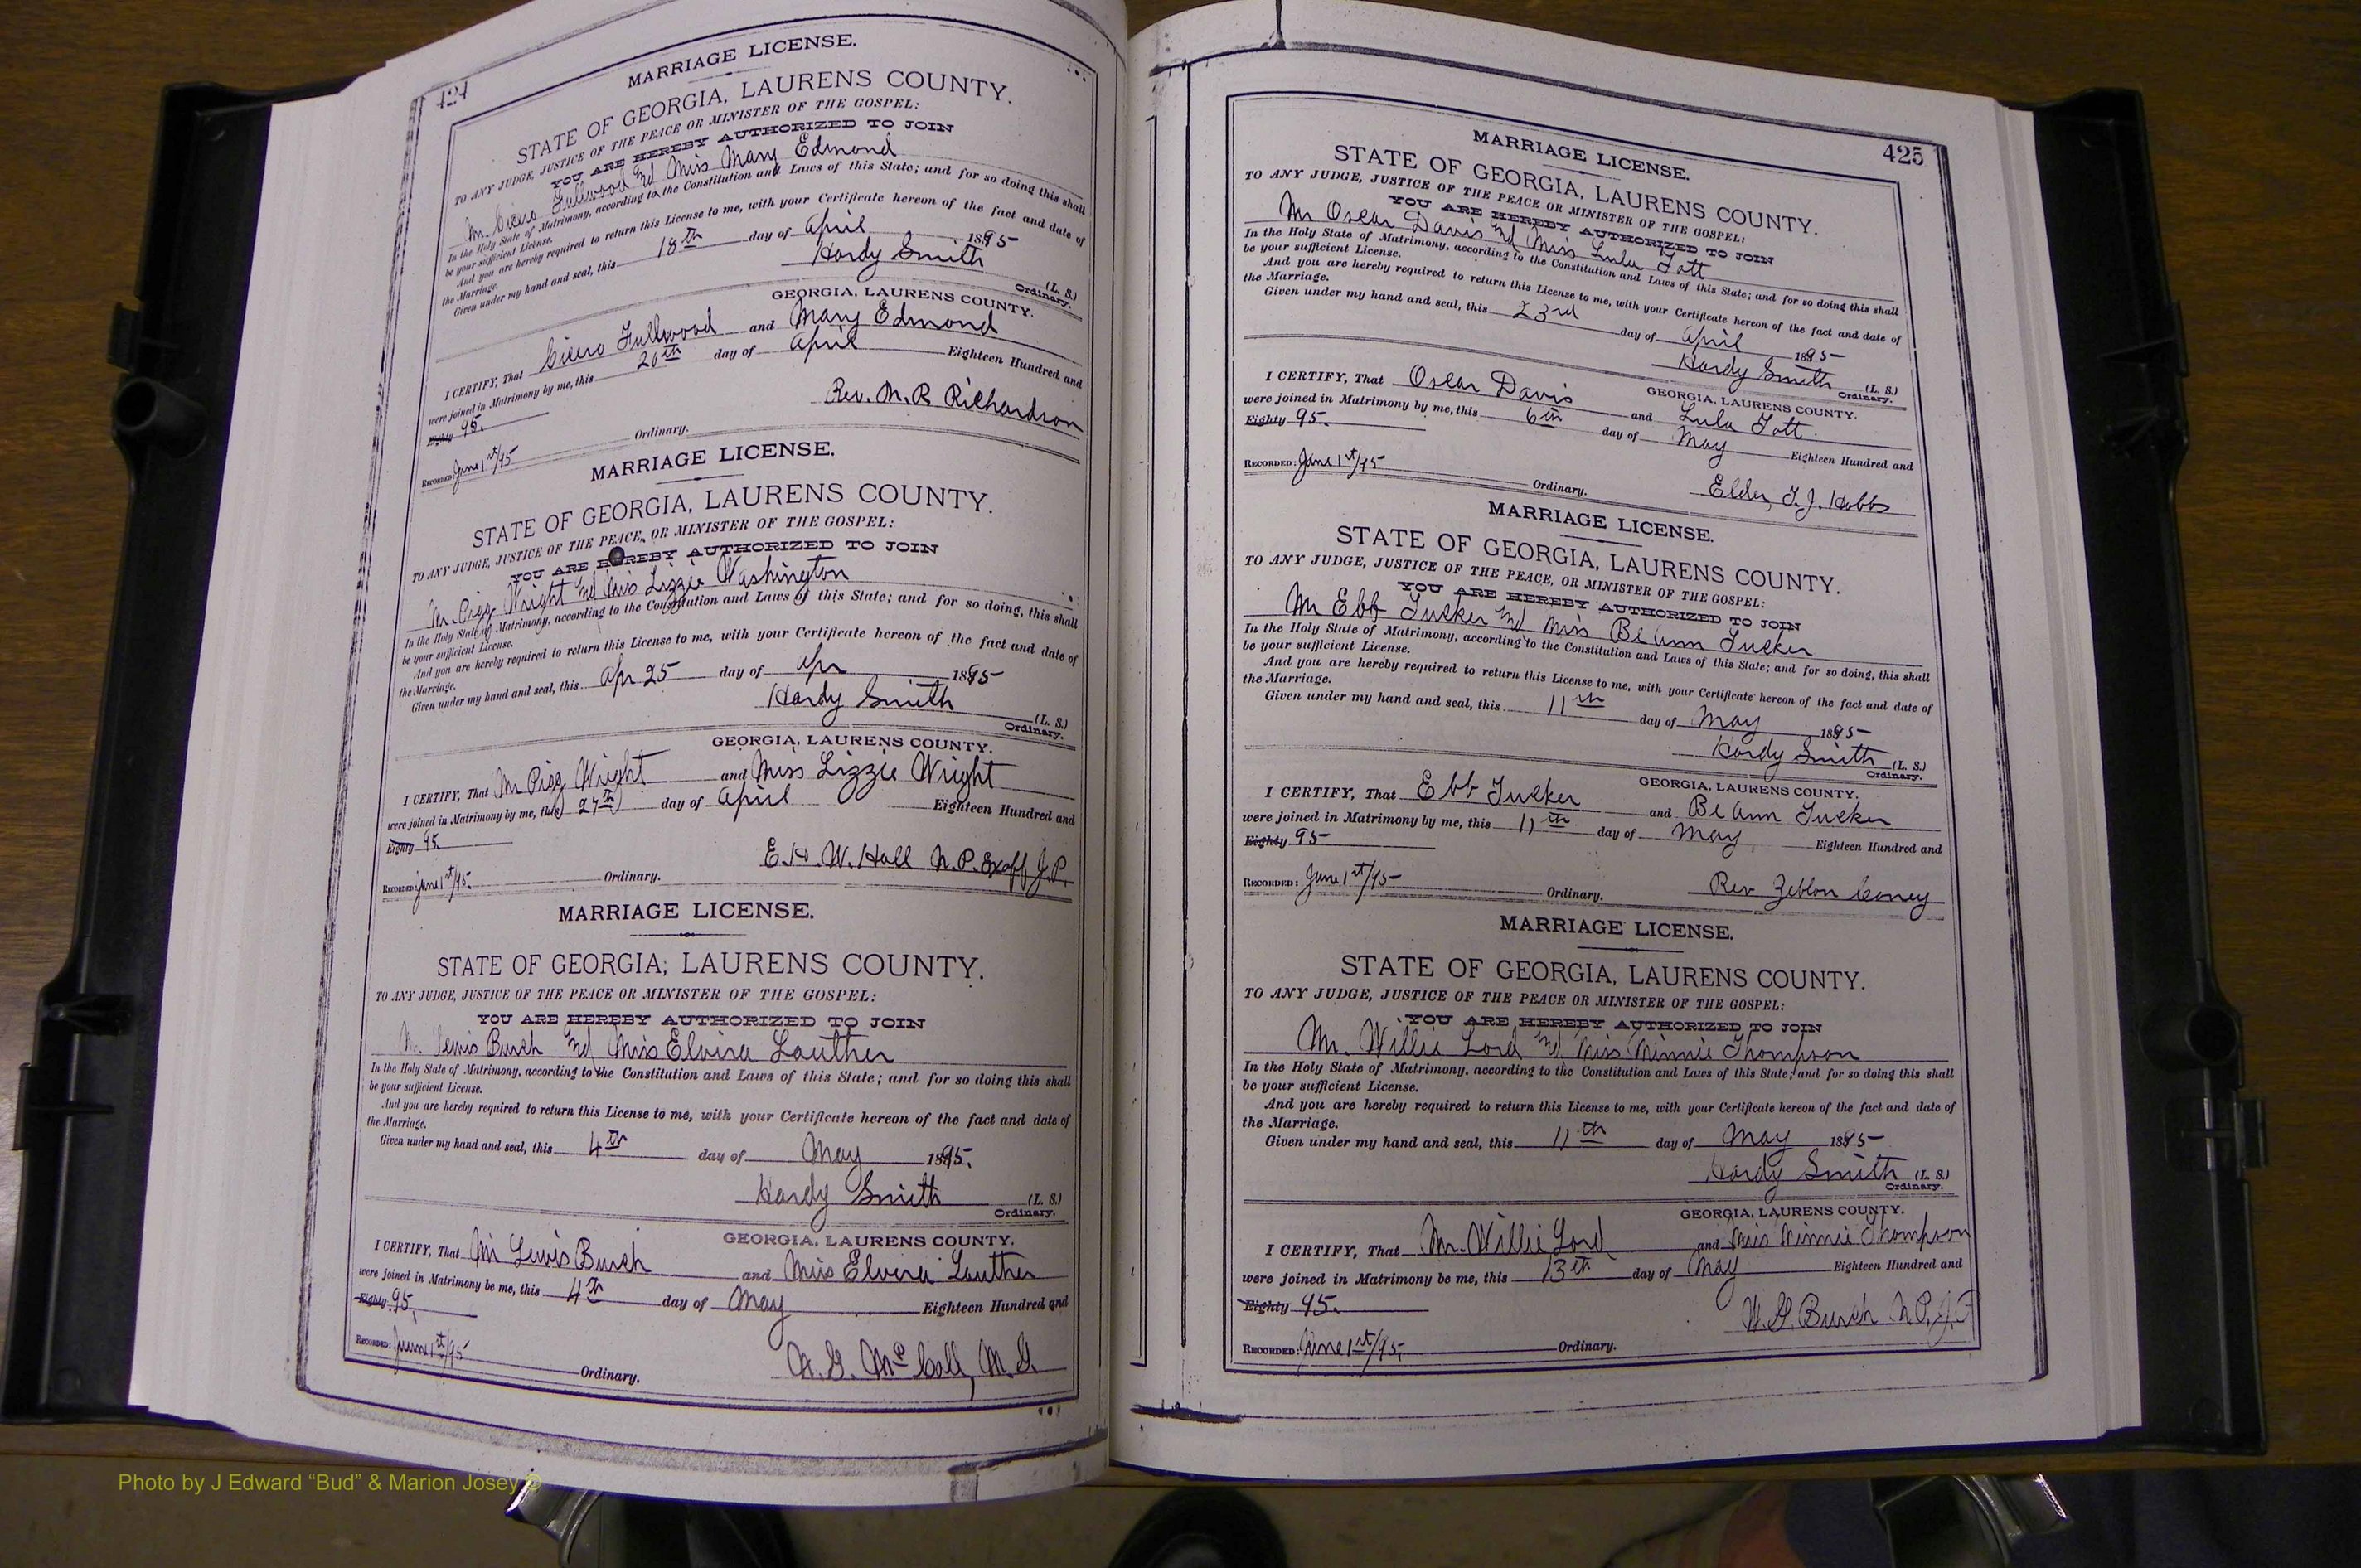 424
MARRIAGE LICENSE.
STATE OF GEORGIA, LAURENS COUNTY.
TO ANY JUDGE, JUSTICE OF THE PEACE OR MINISTER OF THE GOSPEL:
YOU ARE HEREBY AUTHORIZED TO JOIN
Mr. Cicero Fullwood and Miss Mary Edmond
In the Holy State of Matrimony, according to the Constitution and Laws of this State; and for so doing this shall
be your sufficient License.
And you are hereby required to return this License to me, with your Certificate hereon of the fact and date of
the Marriage.
Given under my hand and seal, this 18th day of April 1895
Hardy Smith (L. S.)
Ordinary.
GEORGIA, LAURENS COUNTY.
I CERTIFY, That Cicero Fullwood and Mary Edmond
were joined in Matrimony by me, this 20th day of April Eighteen Hundred and
Eighty 95.
Rev. M. R Richardson
RECORDED: June 1st/95 Ordinary.
MARRIAGE LICENSE.
STATE OF GEORGIA, LAURENS COUNTY.
TO ANY JUDGE, JUSTICE OF THE PEACE, OR MINISTER OF THE GOSPEL:
YOU ARE HEREBY AUTHORIZED TO JOIN
Mr. Pigg Wright and Miss Lizzie Washington
In the Holy State of Matrimony, according to the Constitution and Laws of this State; and for so doing, this shall
be your sufficient License.
And you are hereby required to return this License to me, with your Certificate hereon of the fact and date of
the Marriage.
Given under my hand and seal, this Apr 25 day of Apr 1895
Hardy Smith (L. S.)
Ordinary.
GEORGIA, LAURENS COUNTY.
I CERTIFY, That Mr Pigg Wright and Miss Lizzie Wright
were joined in Matrimony by me, this 27th day of April Eighteen Hundred and
Eighty 95.
E. H. W. Hall N. P. Exoff J. P.
RECORDED: June 1st/95. Ordinary.
MARRIAGE LICENSE.
STATE OF GEORGIA, LAURENS COUNTY.
TO ANY JUDGE, JUSTICE OF THE PEACE OR MINISTER OF THE GOSPEL:
YOU ARE HEREBY AUTHORIZED TO JOIN
Mr. Lewis Burch and Miss Elvira Lauther
In the Holy State of Matrimony, according to the Constitution and Laws of this State; and for so doing this shall
be your sufficient License.
And you are hereby required to return this License to me, with your Certificate hereon of the fact and date of
the Marriage.
Given under my hand and seal, this 4th day of May 1895.
Hardy Smith (L. S.)
Ordinary.
GEORGIA, LAURENS COUNTY.
I CERTIFY, That Mr Lewis Burch and Miss Elvira Lauther
were joined in Matrimony be me, this 4th day of May Eighteen Hundred and
Eighty 95.
N. G. McCall, M. G
RECORDED: June 1st/95 Ordinary.
425
MARRIAGE LICENSE.
STATE OF GEORGIA, LAURENS COUNTY.
TO ANY JUDGE, JUSTICE OF THE PEACE OR MINISTER OF THE GOSPEL:
YOU ARE HEREBY AUTHORIZED TO JOIN
Mr Oscar Davis and Miss Lula Tott
In the Holy State of Matrimony, according to the Constitution and Laws of this State; and for so doing this shall
be your sufficient License.
And you are hereby required to return this License to me, with your Certificate hereon of the fact and date of
the Marriage.
Given under my hand and seal, this 23rd day of April 1895
Hardy Smith (L. S.)
Ordinary.
GEORGIA, LAURENS COUNTY.
I CERTIFY, That Oscar Davis and Lula Tott.
were joined in Matrimony by me, this 6th day of May Eighteen Hundred and
Eighty 95.
Elder T. J. Hobbs
RECORDED: June 1st/95 Ordinary.
MARRIAGE LICENSE.
STATE OF GEORGIA, LAURENS COUNTY.
TO ANY JUDGE, JUSTICE OF THE PEACE, OR MINISTER OF THE GOSPEL:
YOU ARE HEREBY AUTHORIZED TO JOIN
Mr Ebb Tucker and Miss Be Ann Tucker
In the Holy State of Matrimony, according to the Constitution and Laws of this State; and for so doing, this shall
be your sufficient License.
And you are hereby required to return this License to me, with your Certificate hereon of the fact and date of
the Marriage.
Given under my hand and seal, this 11th day of May 1895
Hardy Smith (L. S.)
Ordinary.
GEORGIA, LAURENS COUNTY.
I CERTIFY, That Ebb Tucker and Be Ann Tucker
were joined in Matrimony by me, this 11th day of May Eighteen Hundred and
Eighty 95
Rev Zeblon Coney
RECORDED: June 1st/95 Ordinary.
MARRIAGE LICENSE.
STATE OF GEORGIA, LAURENS COUNTY.
TO ANY JUDGE, JUSTICE OF THE PEACE OR MINISTER OF THE GOSPEL:
YOU ARE HEREBY AUTHORIZED TO JOIN
Mr. Willie Lord and Miss Minnie Thompson
In the Holy State of Matrimony, according to the Constitution and Laws of this State; and for so doing this shall
be your sufficient License.
And you are hereby required to return this License to me, with your Certificate hereon of the fact and date of
the Marriage.
Given under my hand and seal, this 11th day of May 1895
Hardy Smith (L. S.)
Ordinary.
GEORGIA, LAURENS COUNTY.
I CERTIFY, That Mr. Willie Lord and Miss Minnie Thompson
were joined in Matrimony be me, this 13th day of May Eighteen Hundred and
Eighty 95.
W. G. Burch N. P. J. P
RECORDED: June 1st/95, Ordinary.
Photo by J Edward “Bud” & Marion Josey ©